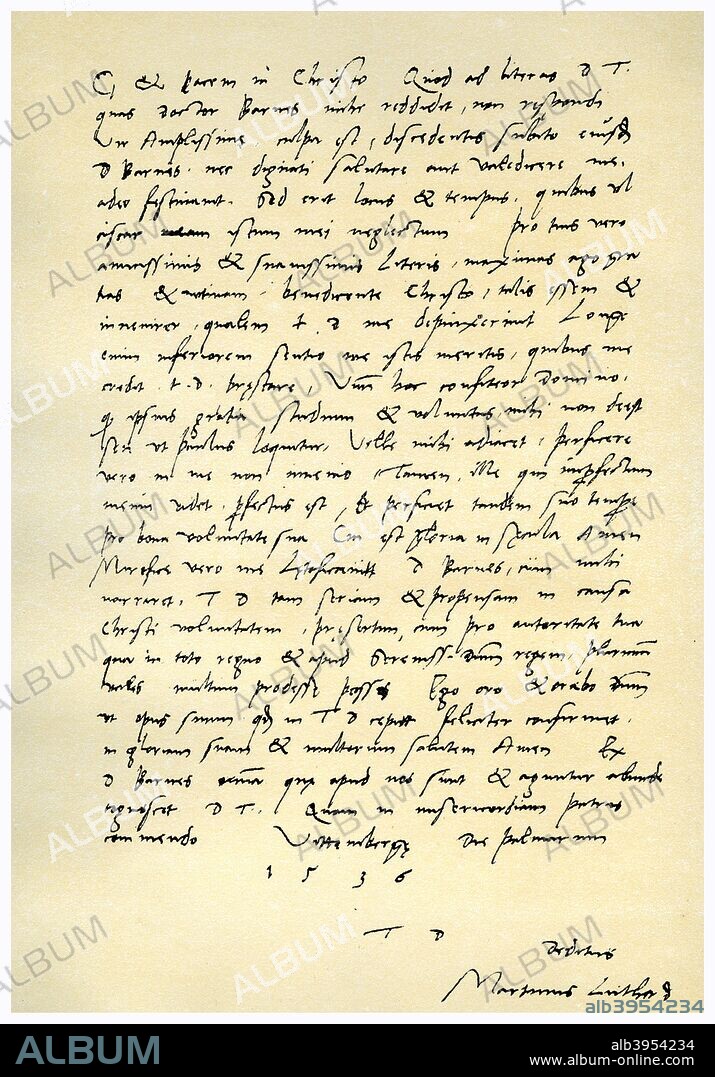 G & pacem in Christo Quod ad literas D T.
quas Doctor Barnes mihi reddidit, non respondi
Vir Amplissime, culpa est, discedentis subito eiusdem
D Barnes. nec dignati salutare aut valedicere me.
adeo festinavit. Sed erit locus & tempus. quibus ul
ciscar istum mei neglectum Pro tuis vero
amicissimis & suavissimis literis, maximas ago gra
tias & utinam benedicente Christo, talis essem &
invenirer, qualem t. D me depinxerint Longe
enim inferiorem sentio me istis meritis, quibus me
credit. t. D. pręstare, Unum hoc confiteor Domino.
qd ipsius gratia studium & voluntas mihi non deest
sed ut Paulus loquitur. Velle mihi adiacet, perficere
vero in me non invenio Tamen, Ille qui imperfectum
meum videt. perfectus est, & perficiet tandem suo tempore
pro bona voluntate sua Cui est gloria in sęcula Amen
Mirifice vero me lętificavit D Barnes, cum mihi
narraret, T D tam seriam & propensam in causa
Christi voluntatem, pręsertim, cum pro autoritate tua
qua in toto regno & apud Sereniss. Dnm regem, plurimum
vales multum prodesse possis Ego oro & orabo Dnm
ut opus suum qd in T D cepit feliciter confirmet.
in gloriam suam & multorum salutem Amen Ex
D Barnes omnia quę apud nos sunt & aguntur abunde
cognoscet D T. Quam in misericordiam patris
commendo Vittembergę Die palmarum
1 5 3 6
T D
deditus
Martinus Luther D
ALBUM
alb3954234
ALBUM
alb3954234
www.album-online.com